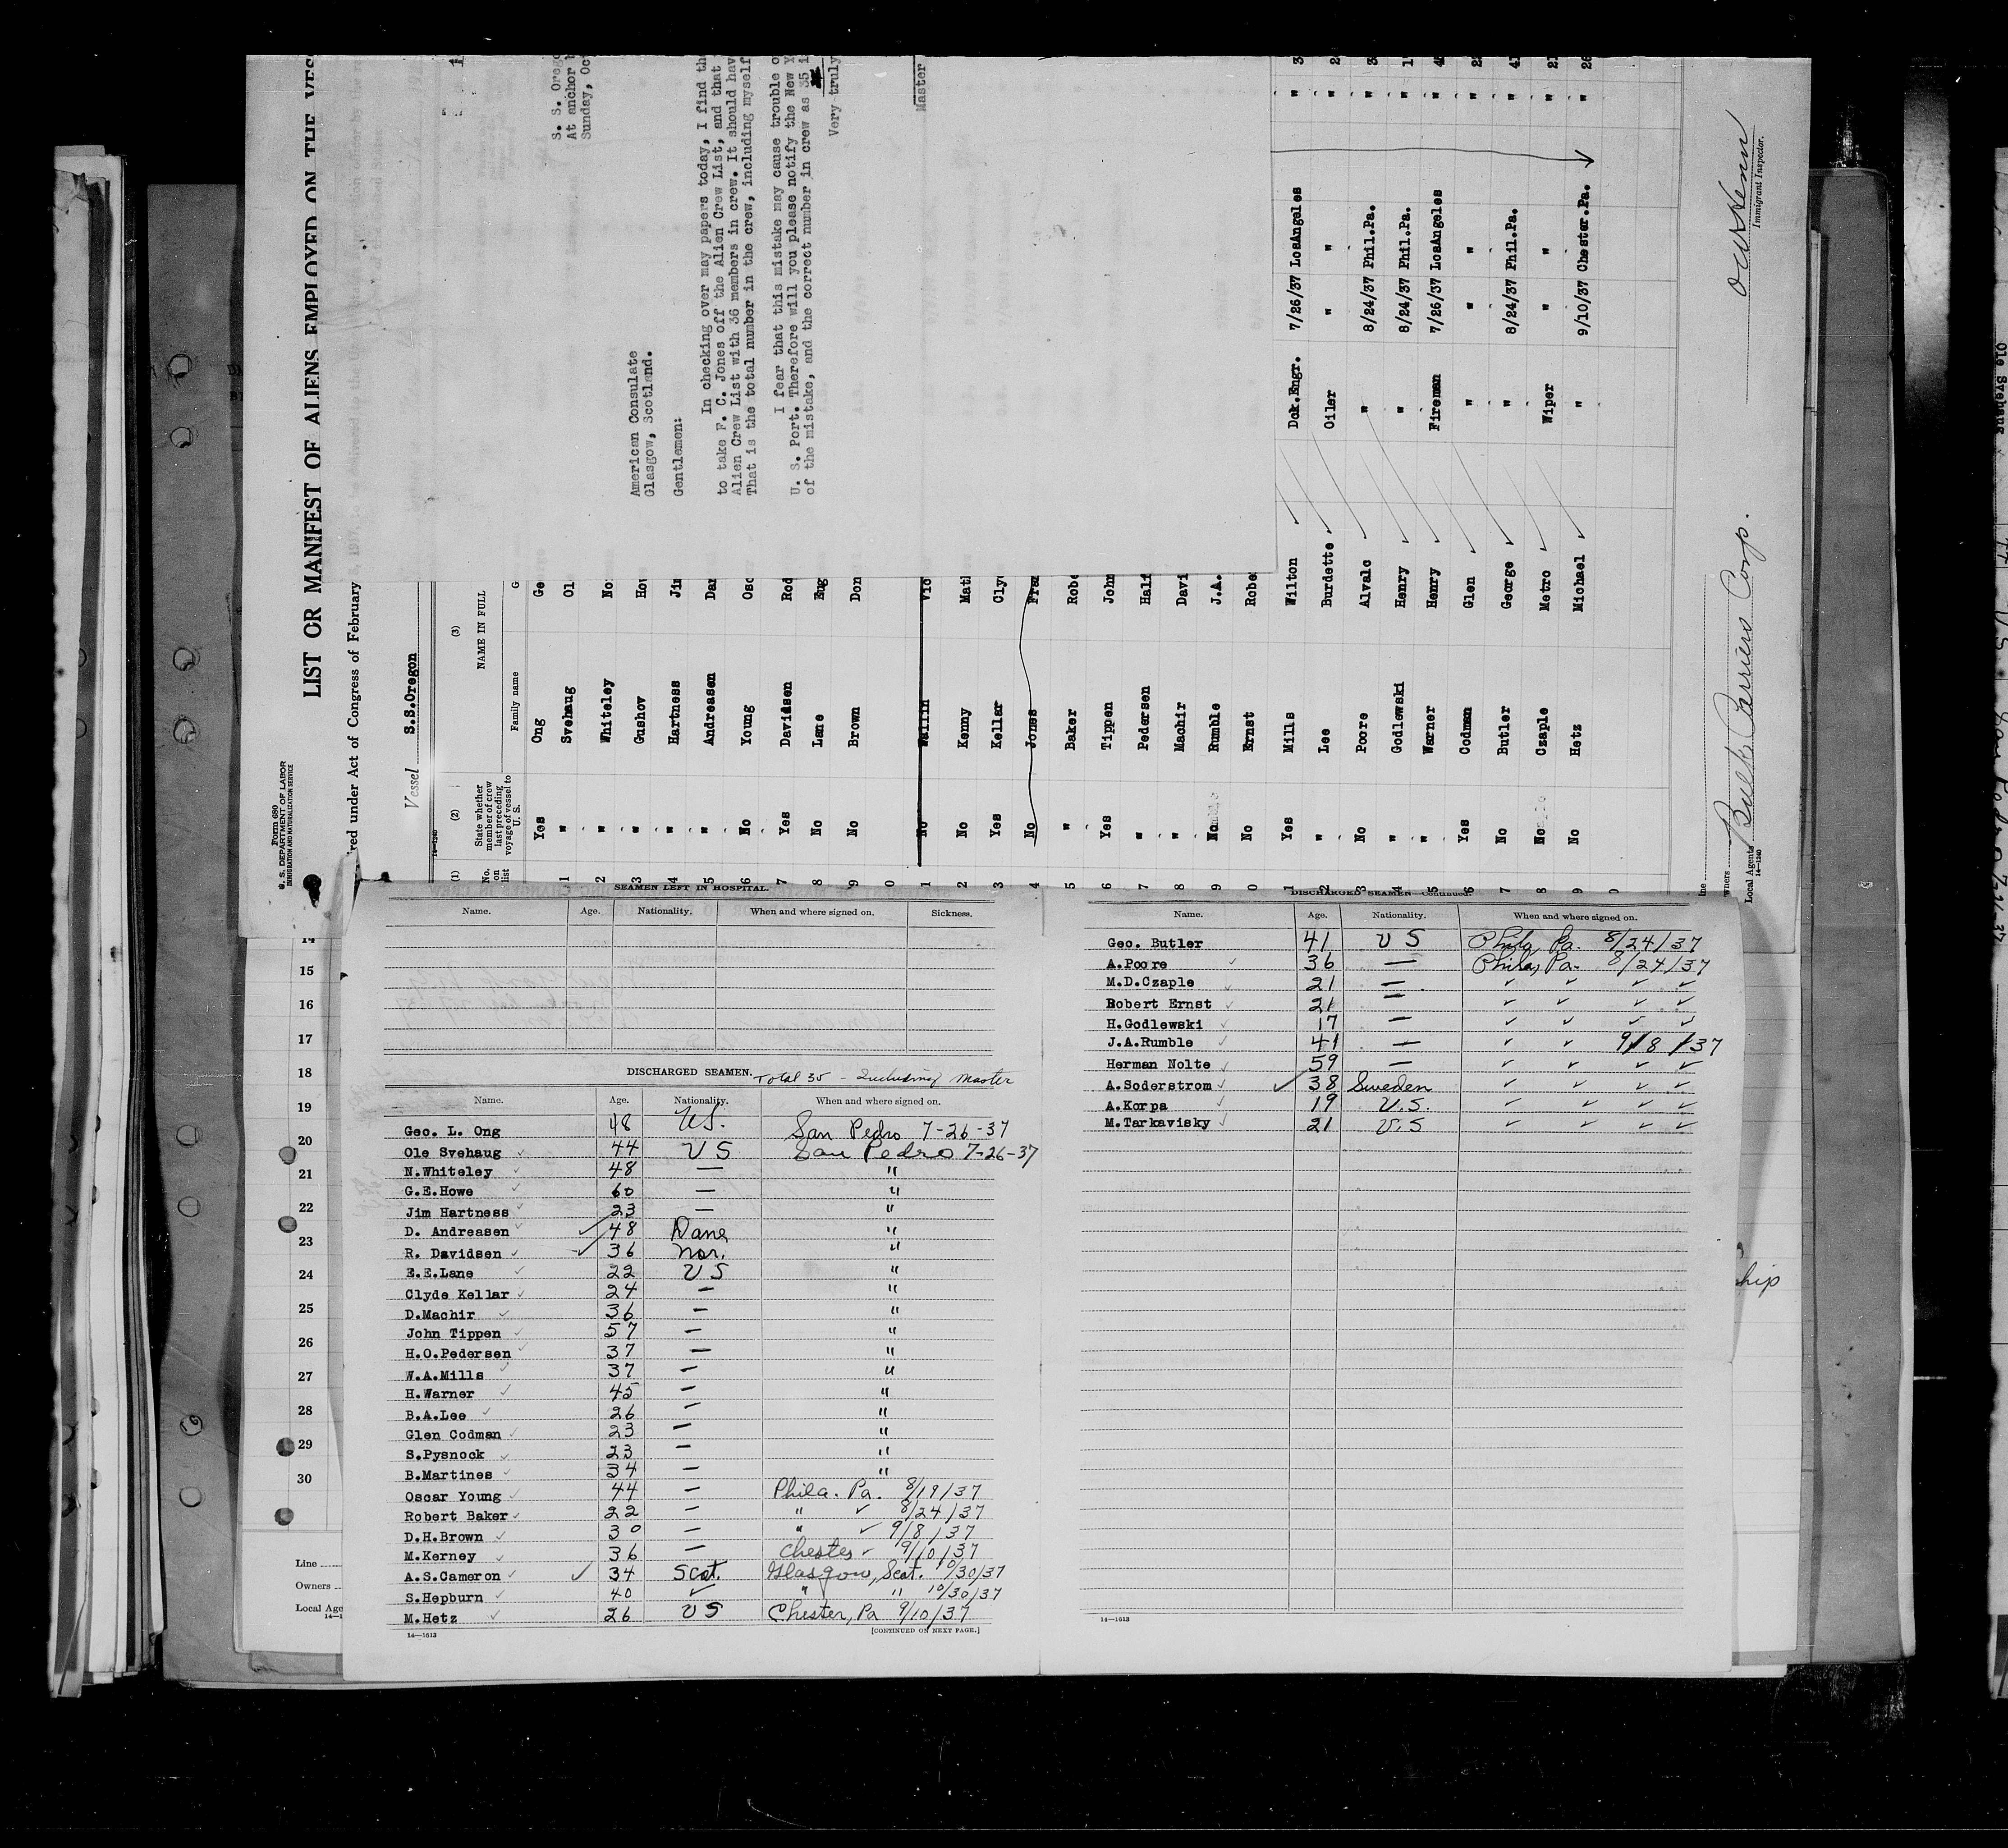 Form 680
U. S. DEPARTMENT OF LABOR
IMMIGRATION AND NATURALIZATION SERVICE
LIST OR MANIFEST OF ALIENS EMPLOYED ON THE VES
red under Act of Congress of February
Vessel S.S.Oregon
14-1240
(1) (2) (3)
No. on list
State whether member of crew last preceding voyage of vessel to U. S.
NAME IN FULL
Family name G
1 Yes Ong Ge
" Svehaug Ol
2 " Whiteley No
3 " Gushov Ho
4 " Hartness Ji
5 " Andreasen Da
6 No Young Osc
7 Yes Davidsen Rod
8 No Lane Eug
9 No Brown Don
0
1 No Wallin Vic
2 No Kenny Mat
3 Yes Kellar Cly
4 No Jones Fra
5 " Baker Robe
6 Yes Tippen John
7 " Pedersen Half
8 " Machir Davi
9 No Rumble J.A.
0 No Ernst Robe
1 Yes Mills Wilton Dck.Engr. 7/26/37 LosAngeles " 3
2 " Lee Burdette Oiler " " " 2
3 No Poore Alvalc " 8/24/37 Phil.Pa. " 3
4 " Godlewski Henry " 8/24/37 Phil.Pa. " 1
5 " Warner Henry Fireman 7/26/37 LosAngeles " 4
6 Yes Codman Glen " " " " 2
7 No Butler George " 8/24/37 Phil.Pa. " 41
8 No Czaple Metro Wiper " " " 21
9 No Hetz Michael " 9/10/37 Chester.Pa. " 26
0
Immigrant Inspector.
Bulk Carriers Corp.
Local Agents
14-1240
S. S. Orego
At anchor
Sunday, Oc
American Consulate
Glasgow, Scotland.
Gentlemen:
In checking over may papers today, I find th
to take F. C. Jones off the Alien Crew List, and that
Alien Crew List with 36 members in crew. It should hav
That is the total number in the crew, including myself
I fear that this mistake may cause trouble o
U. S. Port. Therefore will you please notify the New Y
of the mistake, and the correct number in crew as 35 i
Very truly
Master
SEAMEN LEFT IN HOSPITAL.
Name. Age. Nationality. When and where signed on. Sickness.
DISCHARGED SEAMEN. Total 35 - Including Master
Name. Age. Nationality. When and where signed on.
Geo. L. Ong 48 US. San Pedro 7-26-37
Ole Svehaug 44 US San Pedro 7-26-37
N.Whiteley 48 — "
G.E.Howe 60 — "
Jim Hartness 23 — "
D. Andreasen 48 Dane "
R. Davidsen 36 Nor. "
E.E.Lane 22 US "
Clyde Kellar 24 — "
D.Machir 36 — "
John Tippen 57 — "
H.O.Pedersen 37 — "
W.A.Mills 37 — "
H.Warner 45 — "
B.A.Lee 26 — "
Glen Codman 23 — "
S.Pysnock 23 — "
B.Martines 34 — "
Oscar Young 44 — Phila. Pa. 8/19/37
Robert Baker 22 — " ✓ 8/24/37
D.H.Brown 30 — " ✓ 9/8/37
M.Kerney 36 — Chester ✓ 9/10/37
A.S.Cameron 34 Scot. Glasgow, Scot. 10/30/37
S.Hepburn 40 ✓ " " 10/30/37
M.Hetz 26 US Chester, Pa 9/10/37
14—1613 [CONTINUED ON NEXT PAGE.]
DISCHARGED SEAMEN—Continued.
Name. Age. Nationality. When and where signed on.
Geo. Butler 41 US Phila, Pa. 8/24/37
A.Poore 36 — Phila, Pa. 8/24/37
M.D.Czaple 21 — ✓ ✓ ✓ ✓
Robert Ernst 21 — ✓ ✓ ✓ ✓
H.Godlewski 17 — ✓ ✓ ✓ ✓
J.A.Rumble 41 — ✓ ✓ 9/8/37
Herman Nolte 59 — ✓ ✓ ✓ ✓
A.Soderstrom 38 Sweden ✓ ✓ ✓ ✓
A.Korpa 19 U.S. ✓ ✓ ✓ ✓
M.Tarkavisky 21 U.S ✓ ✓ ✓ ✓
14—1613
14
15
16
17
18
19
20
21
22
23
24
25
26
27
28
29
30
Line
Owners
Local Age
hip
Ole Svehaug